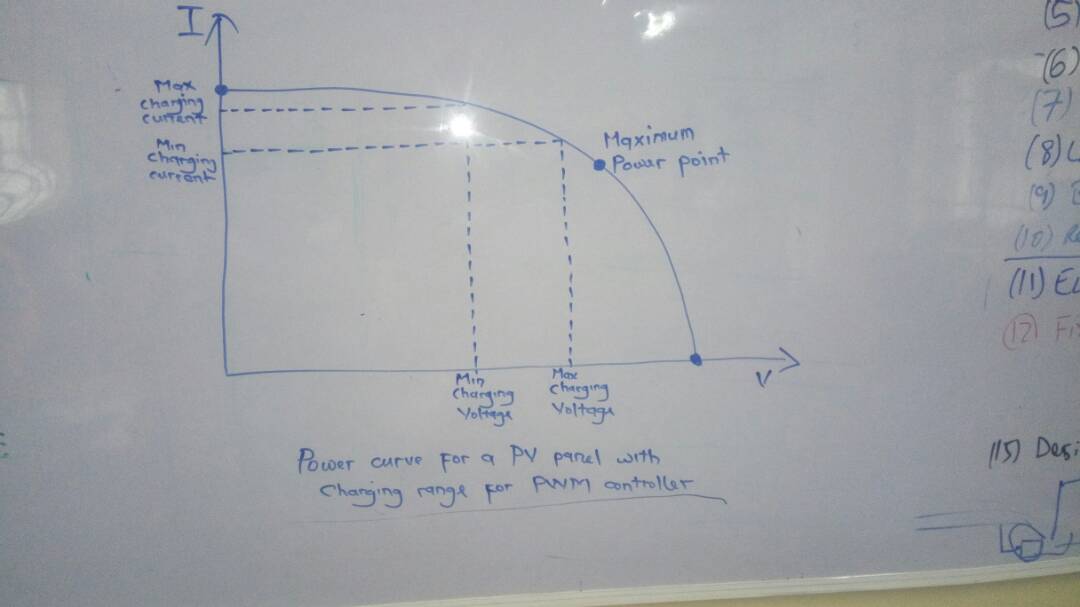 I
Max
charging
current
Min
charging
current
Maximum
Power point
Min
Charging
Voltage
Max
Charging
Voltage
V
Power curve for a PV panel with
Charging range for PWM controller
(5)
(6)
(7)
(8)
(9)
(10)
(11)
(12)
(15)